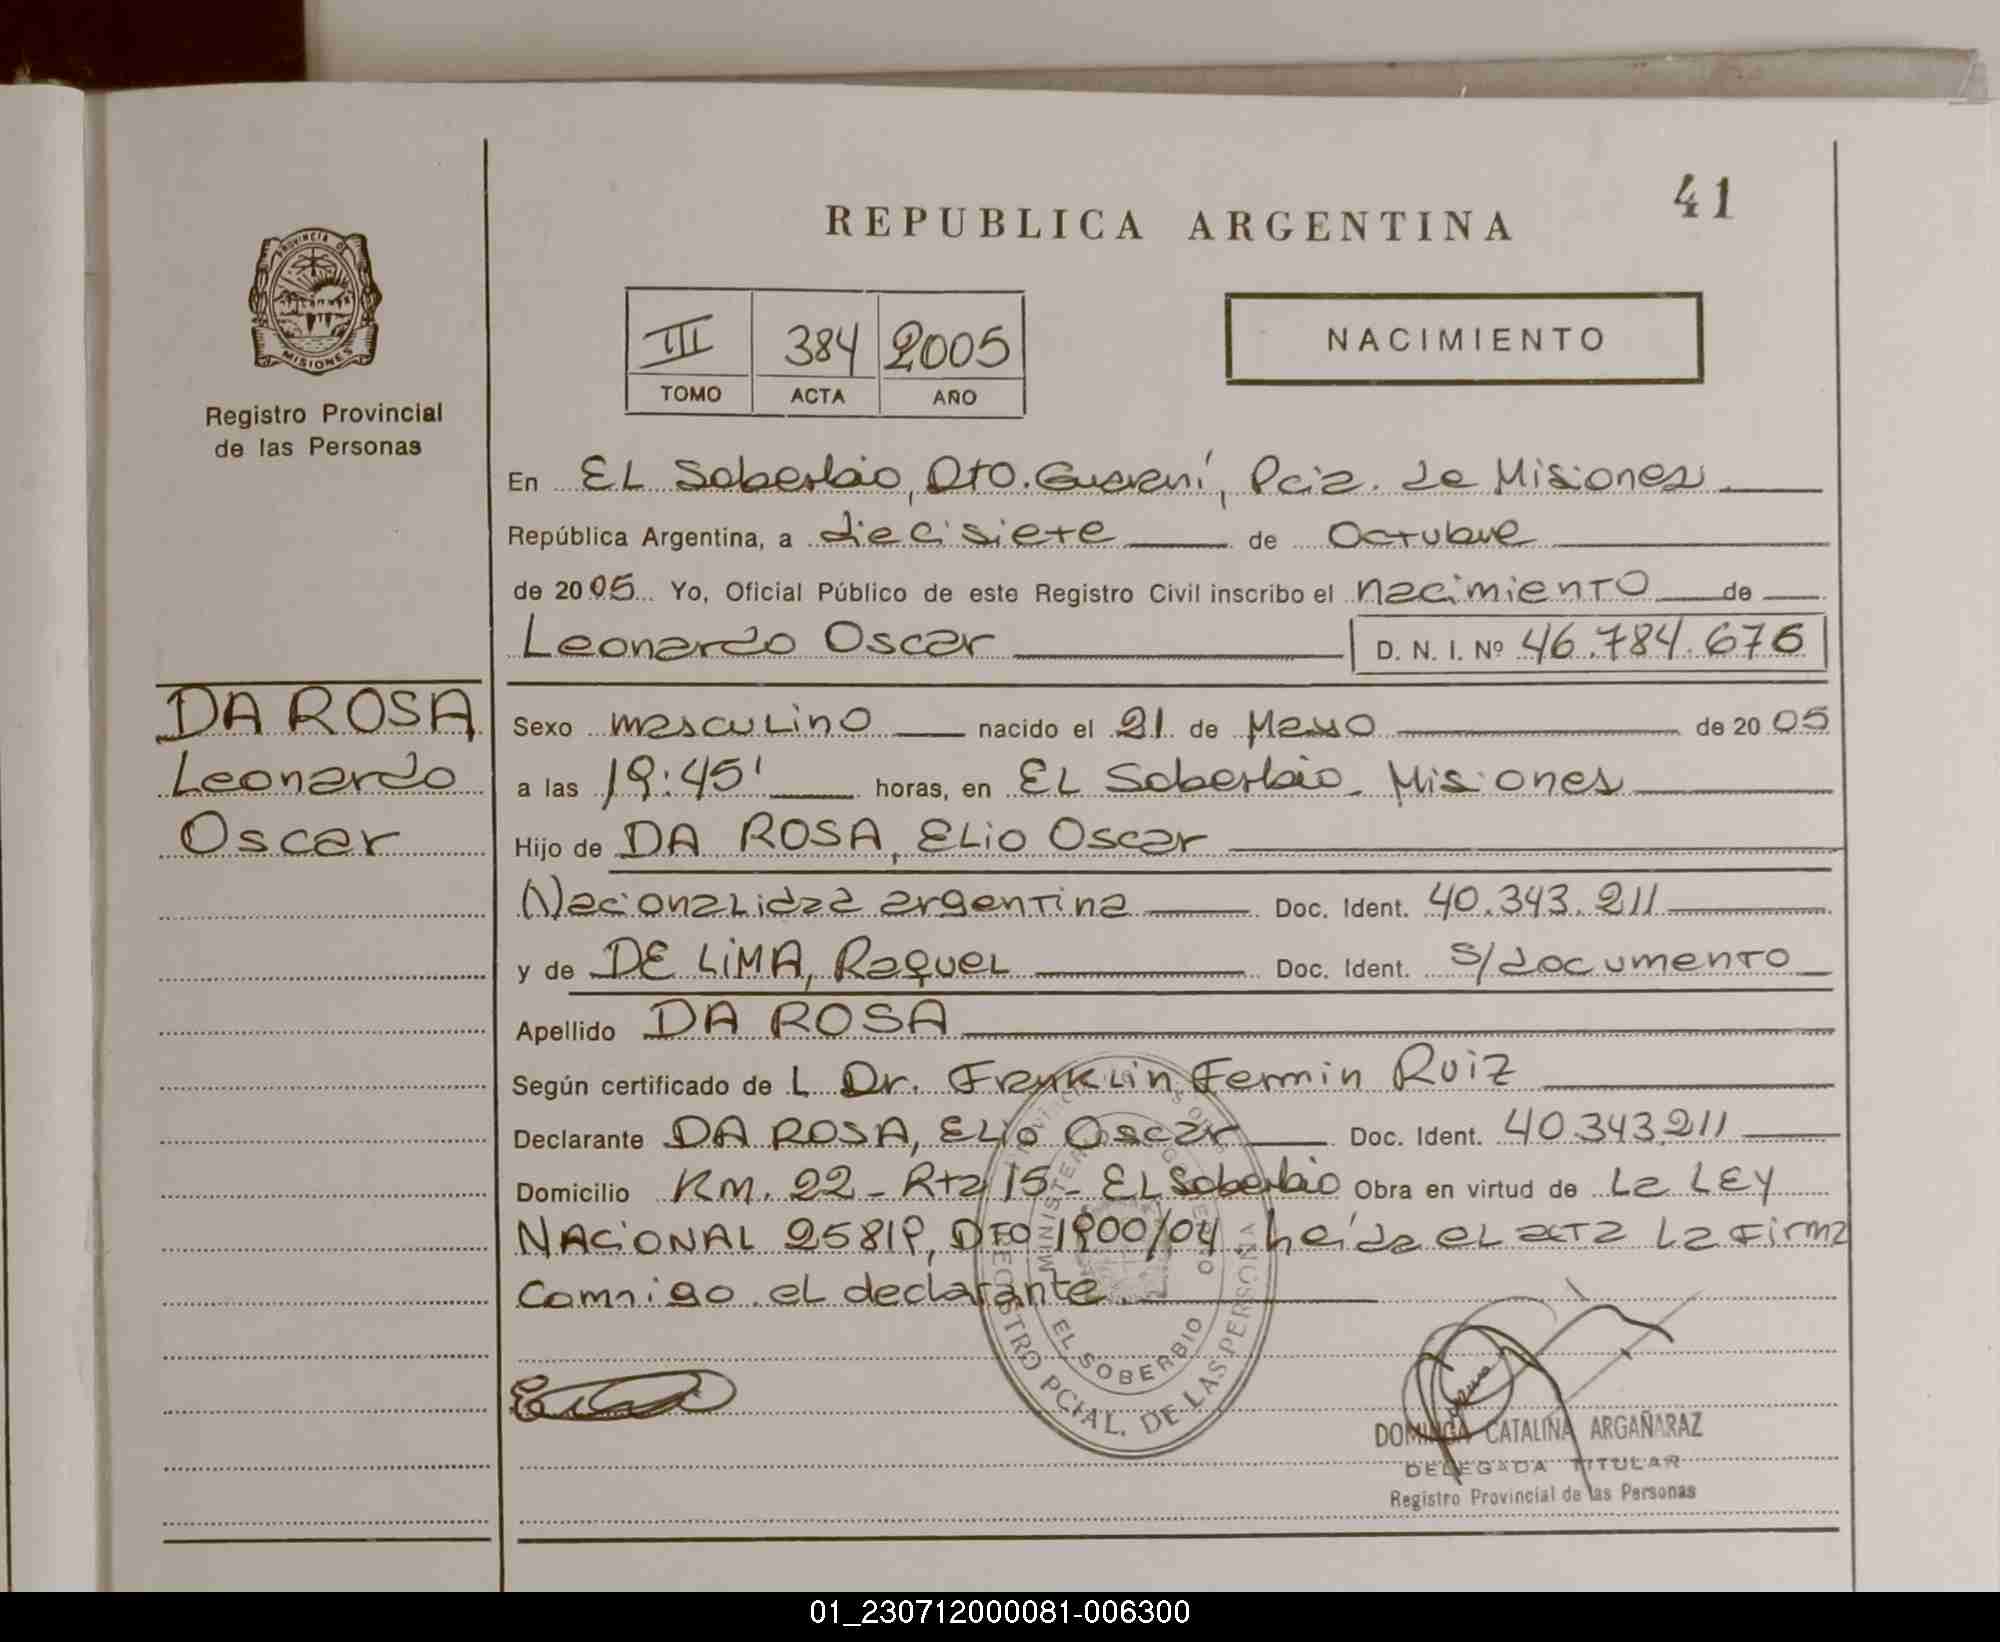 41
REPUBLICA ARGENTINA
PROVINCIA DE
MISIONES
Registro Provincial
de las Personas
NACIMIENTO
III 384 2005
TOMO ACTA AÑO
En EL Soberbio, Dto. Guaraní, Pcia. de Misiones
República Argentina, a diecisiete de Octubre
de 2005 Yo, Oficial Público de este Registro Civil inscribo el nacimiento de
Leonardo Oscar D. N. I. Nº 46.784.676
DA ROSA
Leonardo
Oscar
Sexo masculino nacido el 21 de Mayo de 2005
a las 19:45' horas, en EL Soberbio - Misiones
Hijo de DA ROSA, ELio Oscar
Nacionalidad argentina Doc. Ident. 40.343.211
y de DE LiMA, RaqueL Doc. Ident. s/documento
Apellido DA ROSA
Según certificado de L Dr. Franklin Fermin Ruiz
Declarante DA ROSA, ELio Oscar Doc. Ident. 40.343.211
Domicilio Km. 22 - Rta 15 - EL Soberbio Obra en virtud de La LEY
NACiONAL 25819, DTO 1900/04. Leída eL acta La firma
Conmigo eL declarante.
MINISTERIO GOBIERNO
EL SOBERBIO
REGISTRO PCIAL. DE LAS PERSONAS
DOMINGA CATALINA ARGAÑARAZ
DELEGADA TITULAR
Registro Provincial de las Personas
01_230712000081-006300